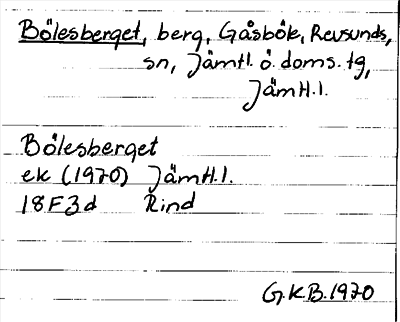 Bölesberget, berg, Gåsbök, Revsunds,
sn, Jämtl. ö. doms. tg,
Jämtl.l.
Bölesberget
ek (1970) Jämtl.l.
18F3d Rind
G.K.B.1970